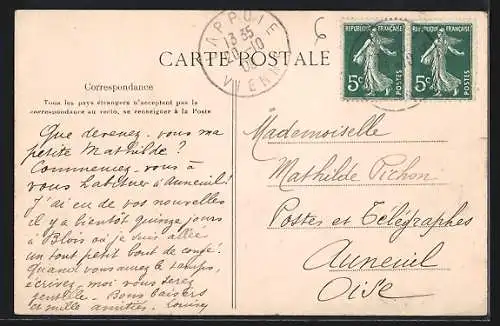 CARTE POSTALE
Correspondance
Tous les pays étrangers n'acceptent pas la
correspondance au recto, se renseigner à la Poste
Que devenez-vous ma
petite Mathilde ?
Commencez-vous à
vous habituer à Auneuil !
J'ai eu de vos nouvelles
il y a bientôt quinze jours
à Blois où je suis allée
un tout petit bout de congé.
Quand vous aurez le temps,
écrivez-moi, vous serez
gentille. Bons baisers
et mille amitiés. Louisy
APPOIE
13 35
20-10
VIENNE
6
REPUBLIQUE FRANÇAISE
5c
POSTES
REPUBLIQUE FRANÇAISE
5c
POSTES
Mademoiselle
Mathilde Pichon
Postes et Télégraphes
Auneuil
Oise